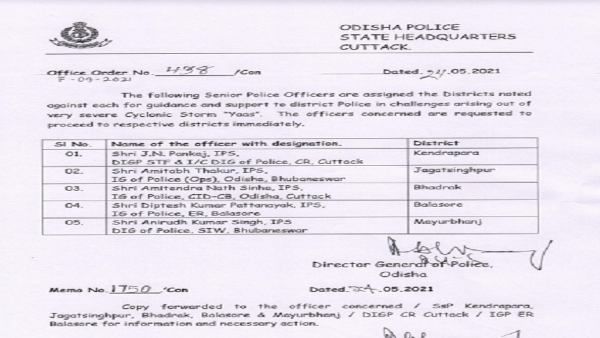 ODISHA POLICE
STATE HEADQUARTERS
CUTTACK.
Office Order No. 438 /Con Dated. 24.05.2021
F-09-2021
The following Senior Police Officers are assigned the Districts noted
against each for guidance and support to district Police in challenges arising out of
very severe Cyclonic Storm "Yaas". The officers concerned are requested to
proceed to respective districts immediately.
Sl No. Name of the officer with designation. District
01. Shri J.N. Pankaj, IPS, Kendrapara
DIGP STF & I/C DIG of Police, CR, Cuttack
02. Shri Amitabh Thakur, IPS, Jagatsinghpur
IG of Police (Ops), Odisha, Bhubaneswar
03. Shri Amitendra Nath Sinha, IPS, Bhadrak
IG of Police, CID-CB, Odisha, Cuttack
04. Shri Diptesh Kumar Pattanayak, IPS, Balasore
IG of Police, ER, Balasore
05. Shri Anirudh Kumar Singh, IPS Mayurbhanj
DIG of Police, SIW, Bhubaneswar
Director General of Police,
Odisha
Memo No. 1750 /Con Dated. 24.05.2021
Copy forwarded to the officer concerned / SsP Kendrapara,
Jagatsinghpur, Bhadrak, Balasore & Mayurbhanj / DIGP CR Cuttack / IGP ER
Balasore for information and necessary action.